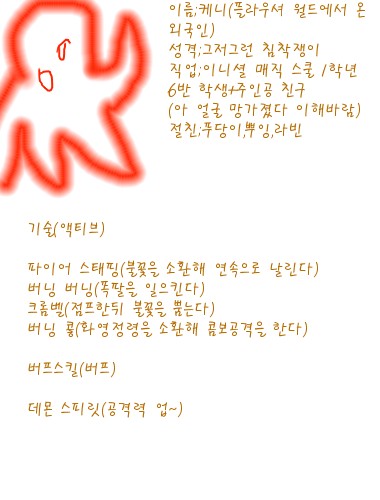 이름;케니(플라우셔 월드에서 온
외국인)
성격;그저그런 침착쟁이
직업;이니셜 매직 스쿨 1학년
6반 학생+주인공 친구
(아 얼굴 망가졌다 이해바람)
절친;푸당이,뿌잉,라빈
기술(액티브)
파이어 스태핑(불꽃을 소환해 연속으로 날린다)
버닝 버닝(폭팔을 일으킨다)
크롬벨(점프한뒤 불꽃을 뿜는다)
버닝 콣(화영정령을 소환해 콤보공격을 한다)
버프스킬(버프)
데몬 스피릿(공격력 업~)